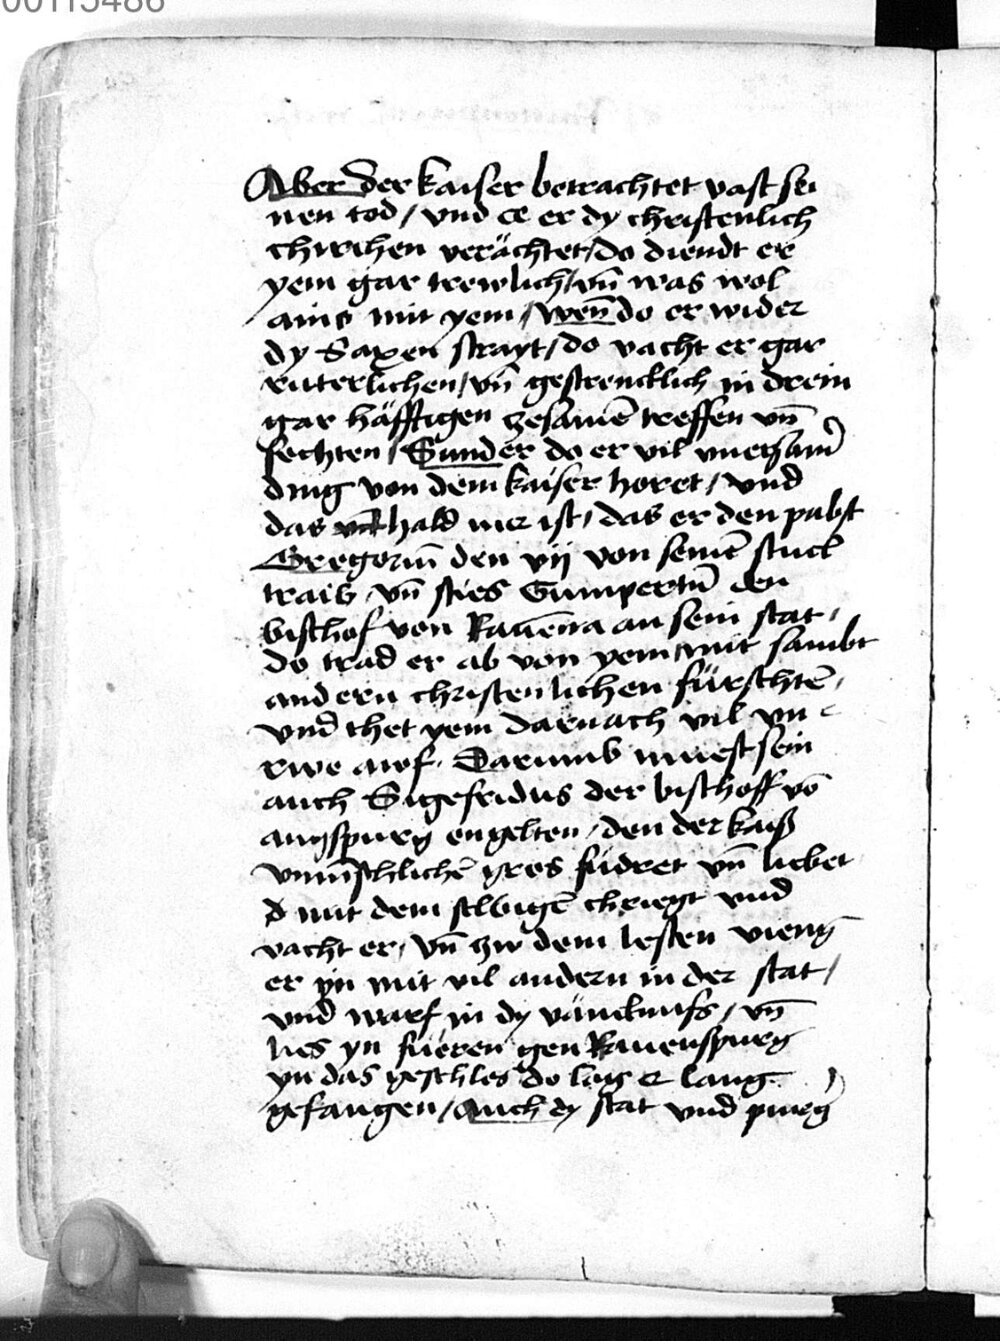 00115486
Aber der kaiser betrachtet vast sei
nen tod / vnd ee er dy christenlich
chirchen verächtet / do diendt er
yem gar trewlich / vn̄ was wol
ains mit yem / wen̄ do er wider
dy Saxen strayt / do vacht er gar
ritterlichen / vn̄ gestrencklich in drein
gar häfftigen zesamē treffen vn̄
fechten / Sunder do er vil vnersam̄
ding von dem kaiser horet / vnd
das hald mer ist / das er den pabst
Gregorium̄ den vij von seinē stuel
traib / vn̄ sties Gumpertum̄ den
bischof von Rauēna an sein stat /
do trad er ab von yem mit sambt
andern christenlichen fürschtē /
vnd thet yem darnach vil vn
rwe awf . Darumb muest sein
auch Sigefridus der bischoff vō
augspurg engelten / den der kaiß
vnmēschlichē gros füdret vn̄ liebet
d mit dem selbigē chriegt vnd
vacht er / vn̄ zw dem lesten vieng
er yn mit vil andern in der stat /
vnd warf in dy väncknuss / vn̄
lies yn füeren gen Rauenspurg
yn das geschles do lag er lang
gefangen / Auch dy stat vnd purg